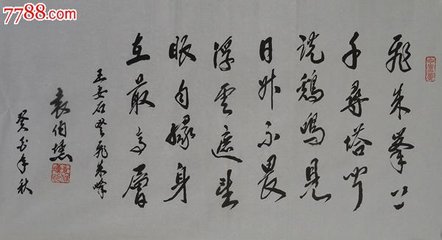 7788.com
飛来峯上
千尋塔聞
說鷄鳴見
日升不畏
浮雲遮望
眼自緣身
在最高層
王安石登飛来峰
袁伯
年秋